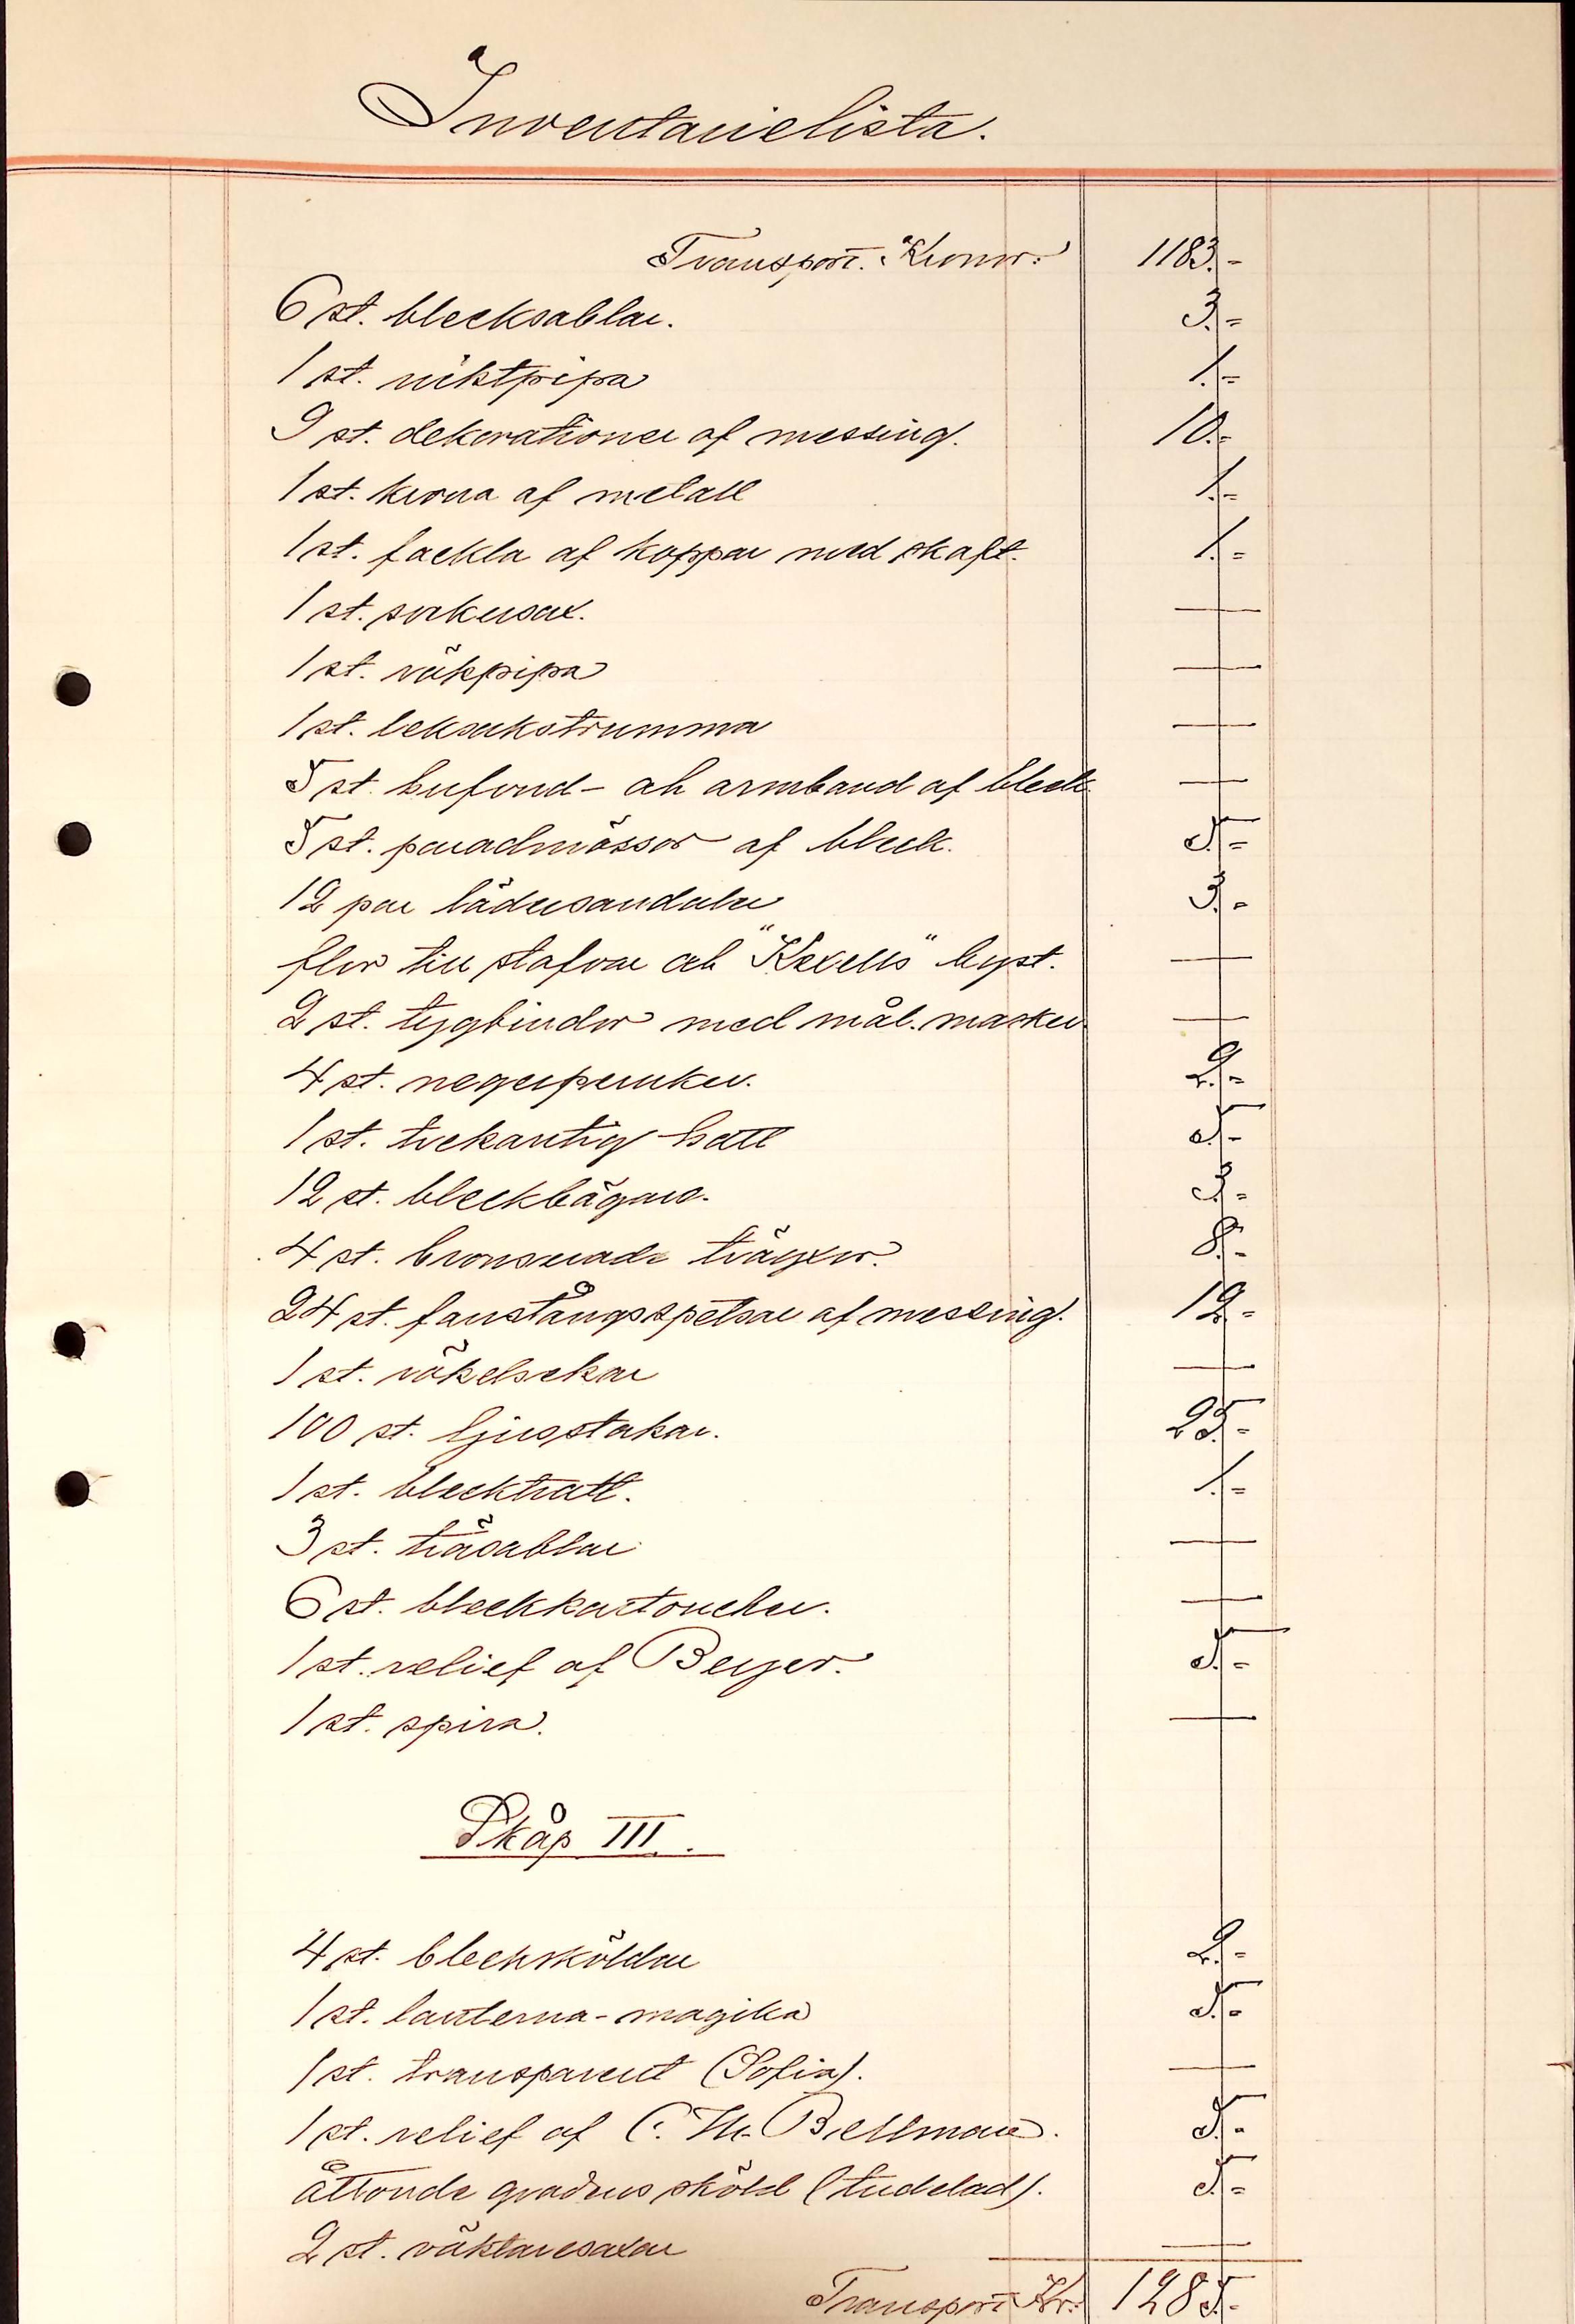 Inventarielista.
Transport. Kronor: 1183.-
6 st. blecksablar. 3.-
1 st. viktpipa 1.-
9 st. dekorationer af messing. 10.-
1 st. krona af metall 1.-
1 st. fackla af koppar med skaft. 1.-
1 st. sockersax. —
1 st. rökpipa —
1 st. leksakstrumma —
5 st. hufvud- och armband af bleck —
5 st. paradmössor af bleck. 5.-
12 par lädersandaler 3.-
flor till stafvar och "Kexells" byst. —
2 st. tygbindor med mål. masker. —
4 st. negerperuker. 2.-
1 st. trekantig hatt 5.-
12 st. bleckbägare. 3.-
4 st. bronserade träyxor. 8.-
24 st. fanstångsspetsar af messing. 12-
1 st. rökelsekar —
100 st. ljusstakar. 25.-
1 st. blecktratt. 1.-
3 st. träsablar —
6 st. bleckkartoucher. —
1 st. relief af Beyer. 5.-
1 st. spira. —
Skåp III.
4 st. blecksköldar 2.-
1 st. lanterna-magika 5.-
1 st. transparent (Sofia). —
1 st. relief af C. M. Bellman. 5.-
åttonde gradens sköld (tudelad). 5.-
2 st. väktaresaxar —
Transport Kr: 1285.-